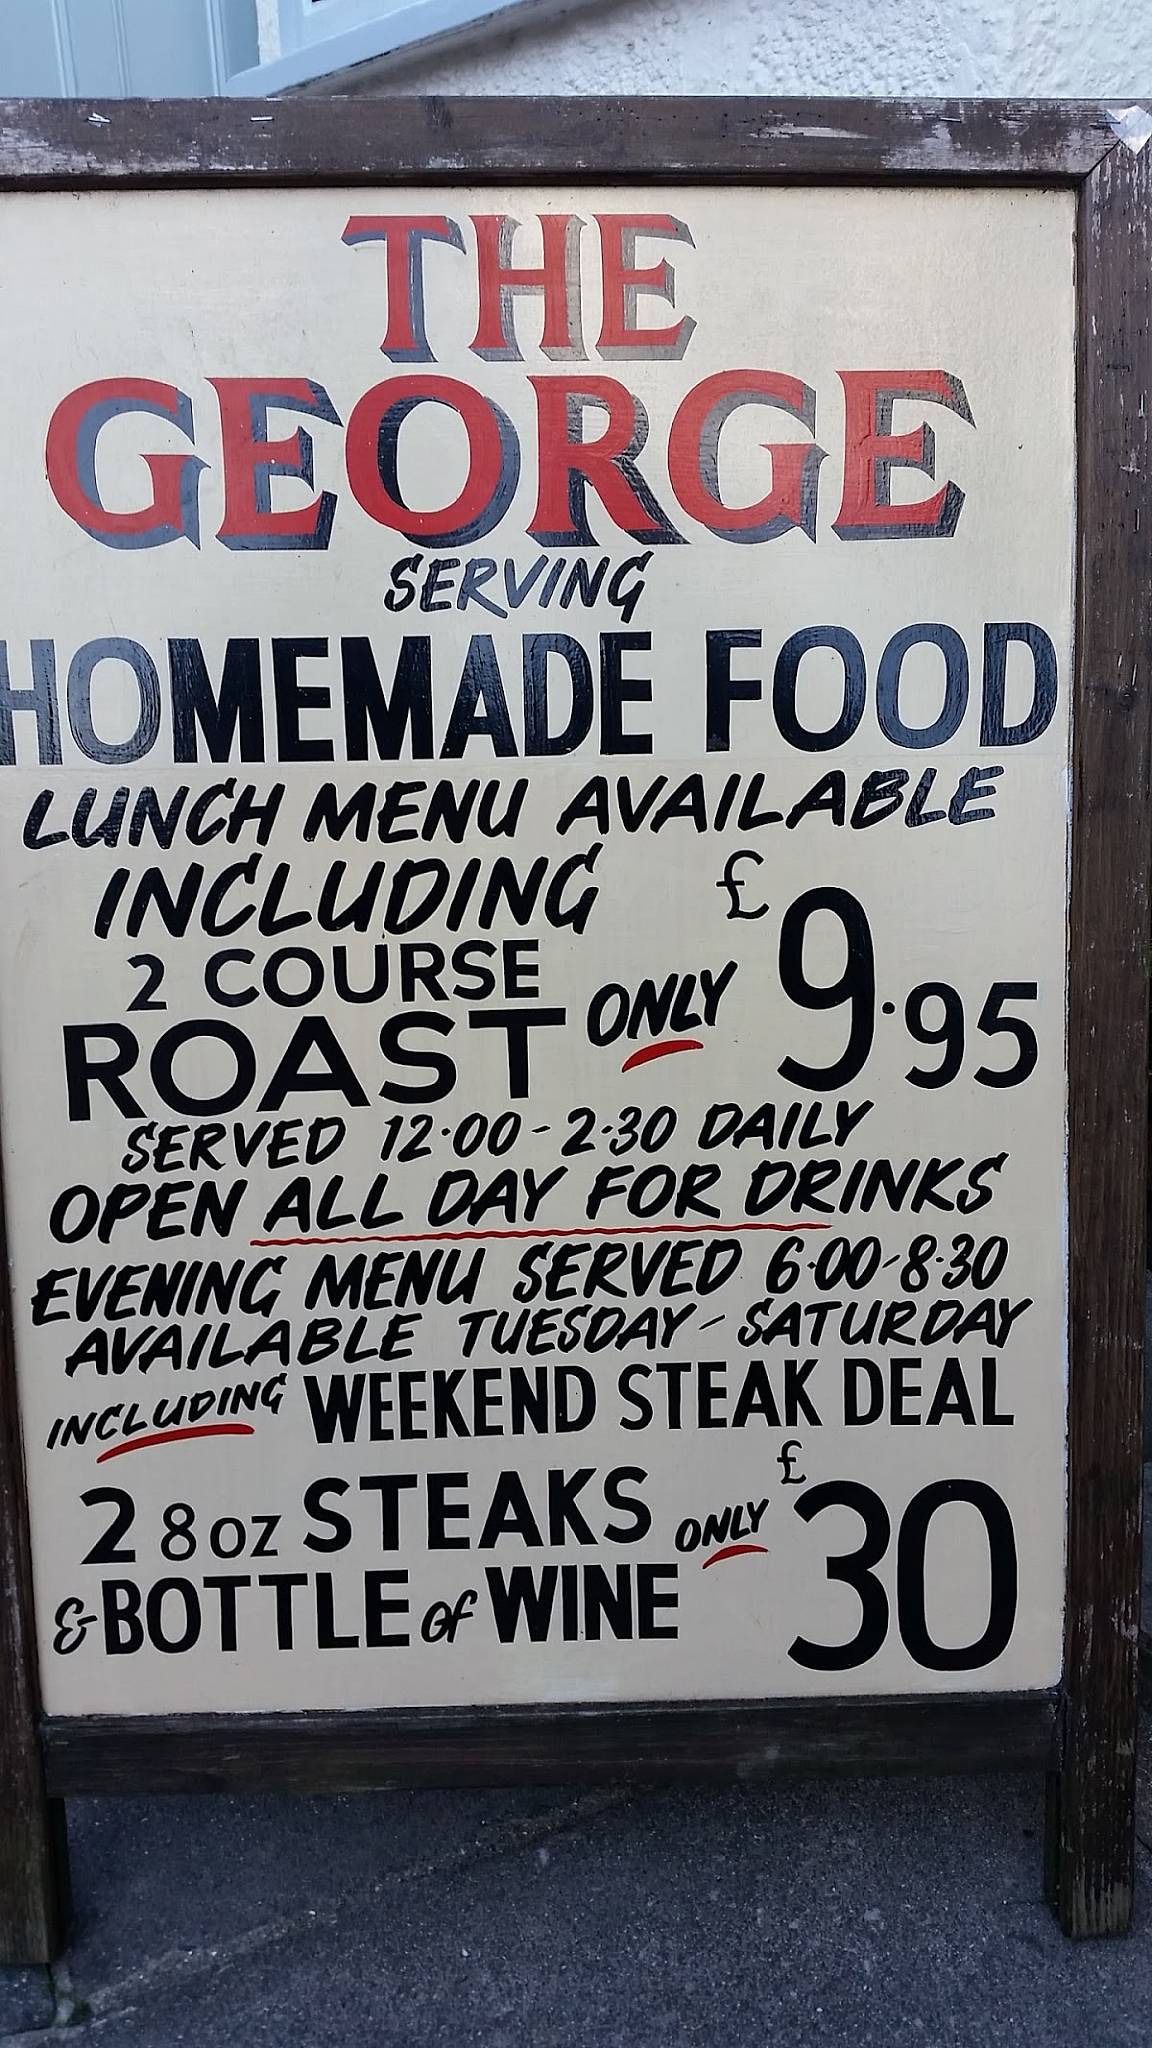 THE
GEORGE
SERVING
HOMEMADE FOOD
LUNCH MENU AVAILABLE
INCLUDING
2 COURSE
ROAST ONLY £9.95
SERVED 12.00-2.30 DAILY
OPEN ALL DAY FOR DRINKS
EVENING MENU SERVED 6.00-8.30
AVAILABLE TUESDAY-SATURDAY
INCLUDING WEEKEND STEAK DEAL
2 8oz STEAKS ONLY £30
& BOTTLE of WINE